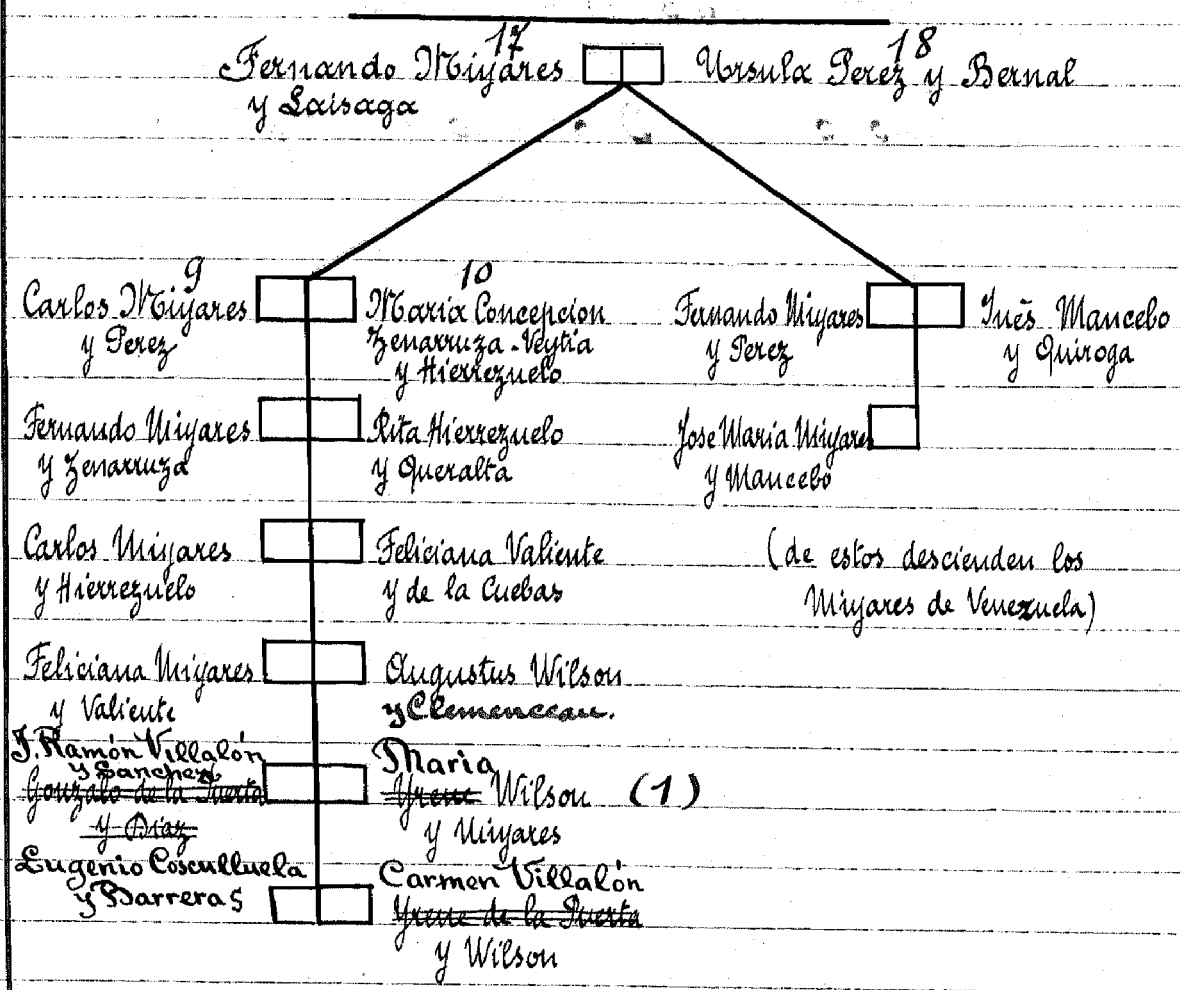 17 18
Fernando Miyares Ursula Perez y Bernal
y Laisaga
9
Carlos Miyares
y Perez
10
Maria Concepcion
Zenarruza-Veytia
y Hierrezuelo
Fernando Miyares
y Perez
Inés Mancebo
y Quiroga
Fernando Miyares
y Zenarruza
Rita Hierrezuelo
y Queralta
Jose Maria Miyares
y Mancebo
Carlos Miyares
y Hierrezuelo
Feliciana Valiente
y de la Cuebas
(de estos descienden los
Miyares de Venezuela)
Feliciana Miyares
y Valiente
Augustus Wilson
y Clemenceau.
J. Ramón Villalón
y Sanchez
Gonzalo de la Puerta
y Diaz
Maria
Yrene Wilson (1)
y Miyares
Eugenio Cosculluela
y Barreras
Carmen Villalón
Yrene de la Puerta
y Wilson